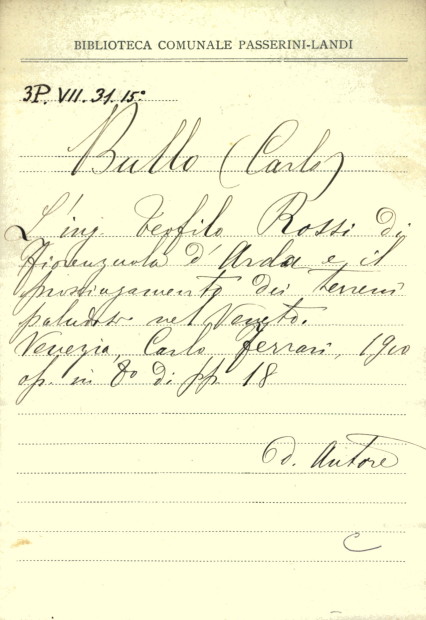 BIBLIOTECA COMUNALE PASSERINI-LANDI
3P. VII. 31. 15º
Bullo (Carlo)
L'ing. Teofilo Rossi di
Fiorenzuola d'Arda e il
prosciugamento dei terreni
paludosi nel Veneto.
Venezia, Carlo Ferrari, 1900
op. in 8º di pp. 18
d. Autore
C